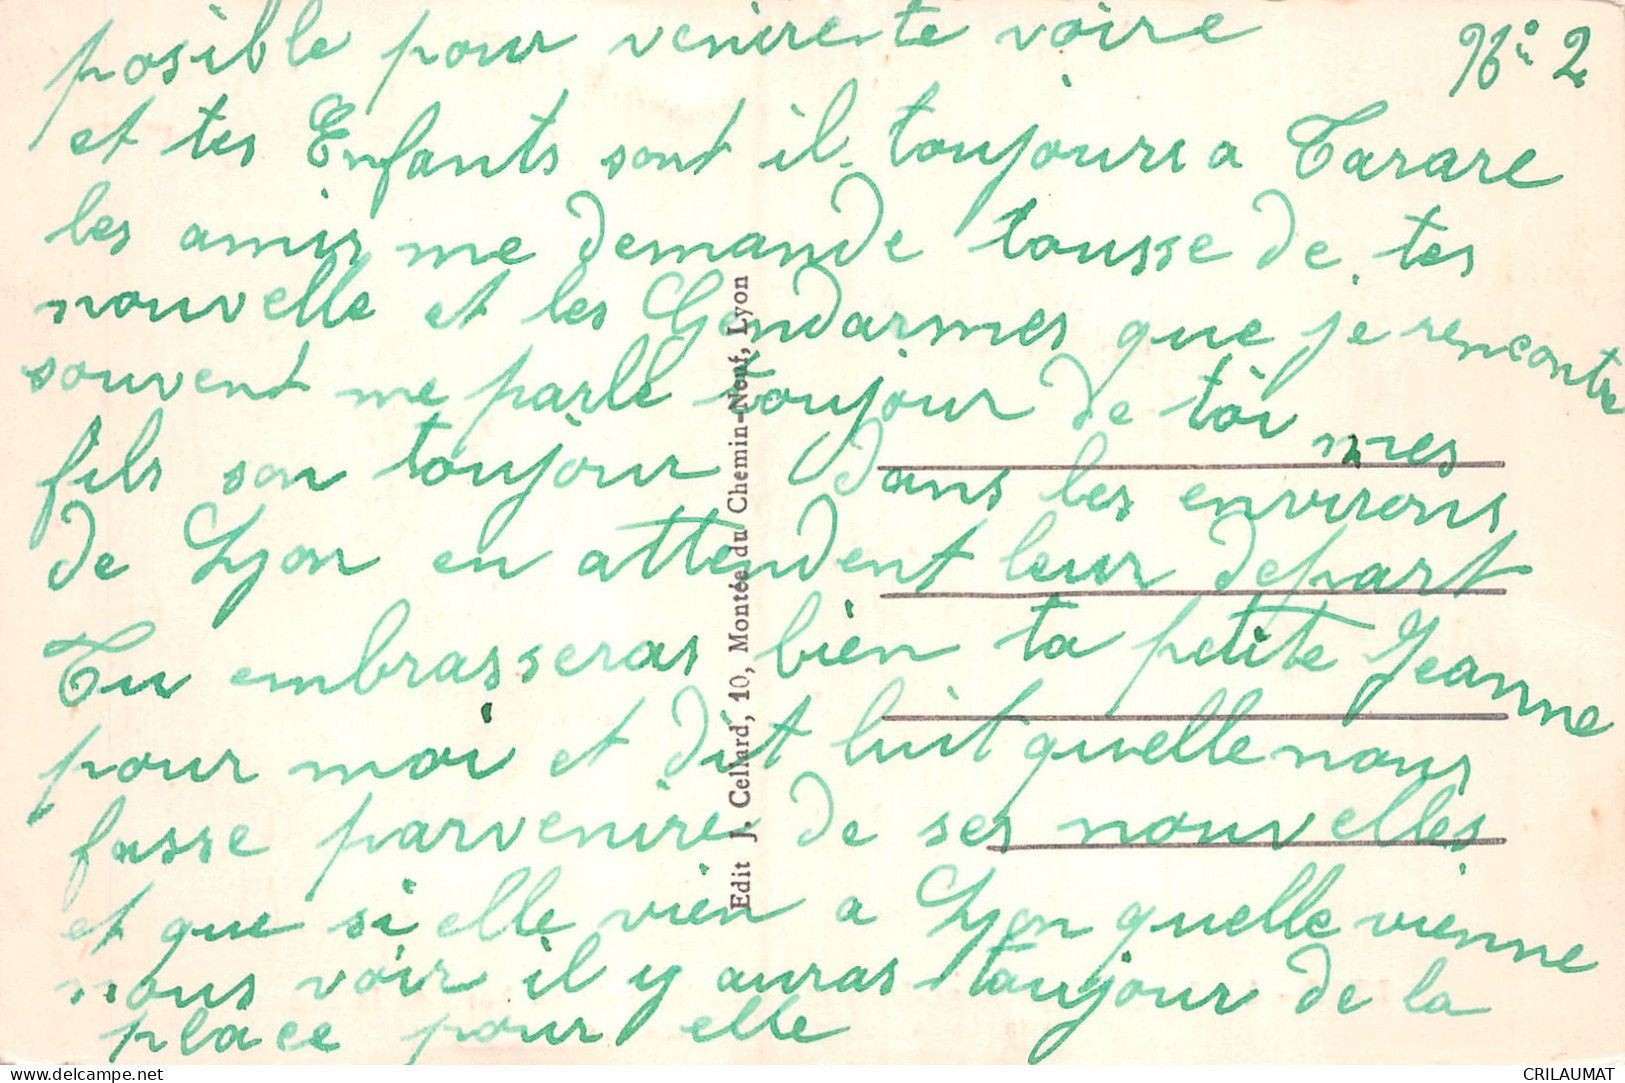 No 2
posible pour venire te voire
et tes Enfants sont il toujours a Tarare
les amis me demande tousse de tes
nouvelle et les Gendarmes que je rencontre
souvent me parle toujour de toi mes
fils son toujour dans les environs
de Lyon en attendent leur depart
Tu embrasseras bien ta petite Jeanne
pour moi et dit luit quelle nous
fasse parvenire de ses nouvelles
et que si elle vien a Lyon quelle vienne
nous voir il y auras toujour de la
place pour elle
Edit J. Cellard, 10, Montée du Chemin-Neuf, Lyon
delcampe.net
CRILAUMAT